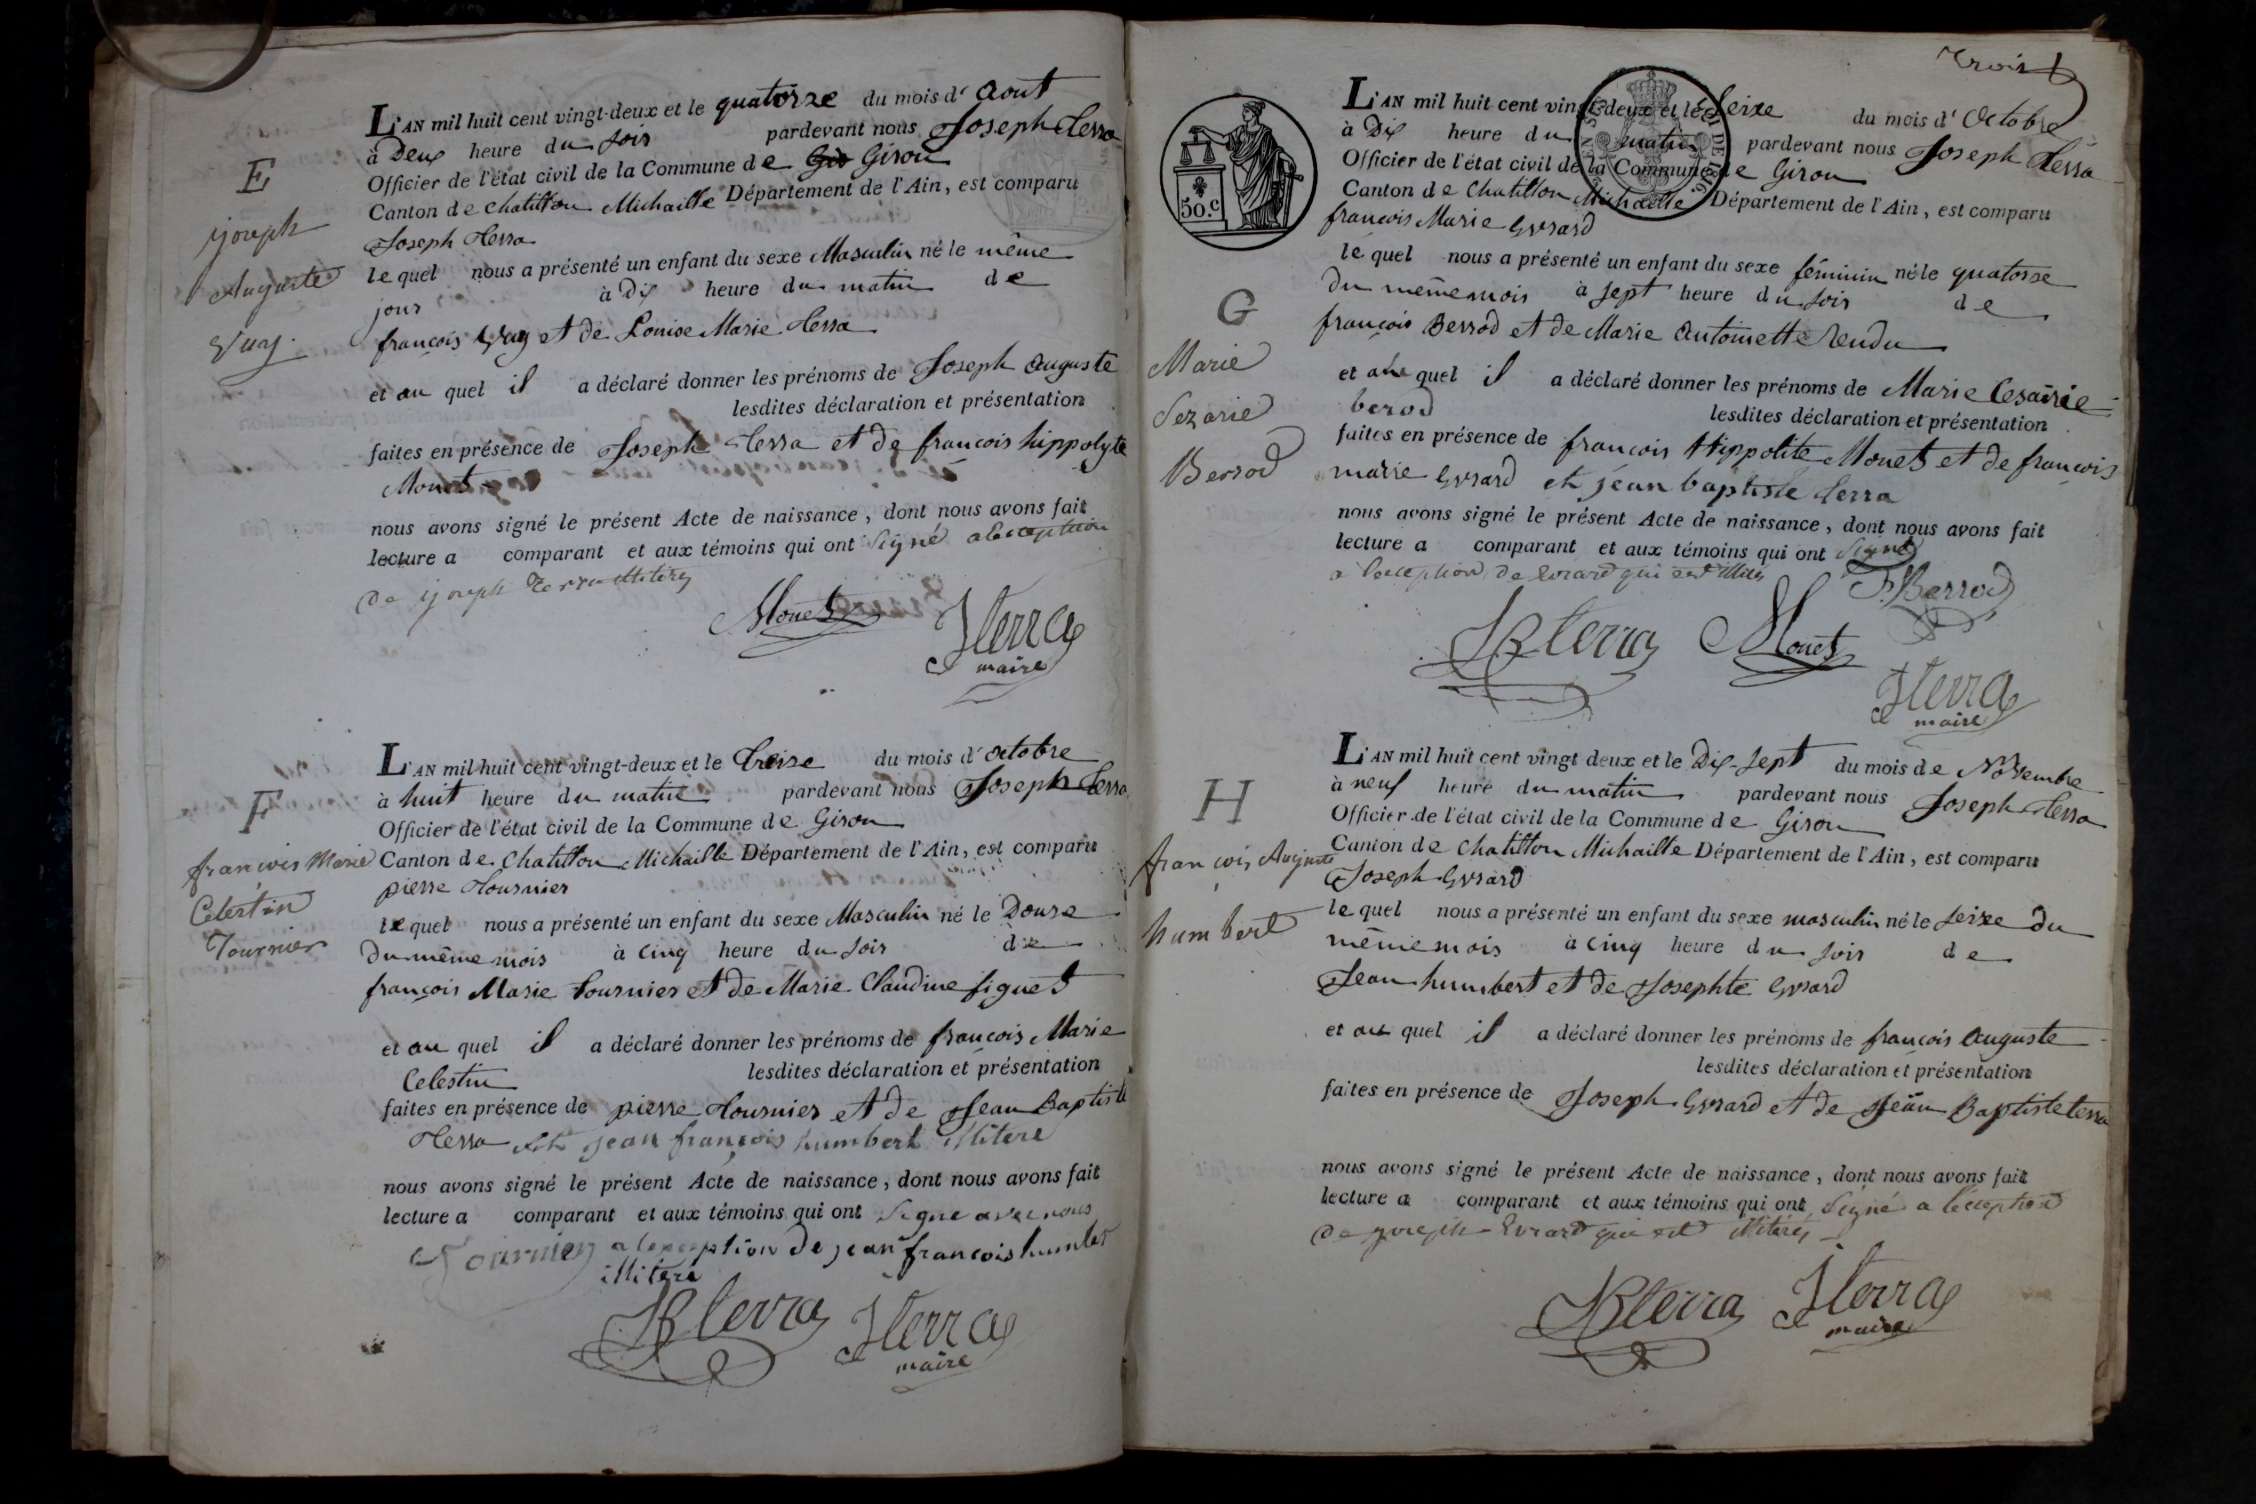 E
joseph
Auguste
Vuay.
L'AN mil huit cent vingt-deux et le quatorze du mois d' Aout
à Deux heure du soir pardevant nous Joseph Terra
Officier de l'état civil de la Commune de Giron
Canton de Chatillon Michaille Département de l'Ain, est comparu
Joseph Terra
le quel nous a présenté un enfant du sexe Masculin né le même
jour à Dix heure du matin de
françois Vuay et de Louise Marie Terra
et au quel il a déclaré donner les prénoms de Joseph auguste
lesdites déclaration et présentation
faites en présence de Joseph Terra et de françois hippolyte
Monet
nous avons signé le présent Acte de naissance, dont nous avons fait
lecture a comparant et aux témoins qui ont signé a leception
de joseph Terra illiteré
Monet JTerra
maire
F
françois Marie
Celestin
Tournier
L'AN mil huit cent vingt-deux et le treize du mois d' octobre
à huit heure du matin pardevant nous Joseph Terra
Officier de l'état civil de la Commune de Giron
Canton de Chatillon Michaille Département de l'Ain, est comparu
pierre Tournier
le quel nous a présenté un enfant du sexe Masculin né le Douze
du même mois à cinq heure du soir de
françois Marie tournier et de Marie Claudine figuet
et au quel il a déclaré donner les prénoms de françois Marie
Celestin lesdites déclaration et présentation
faites en présence de pierre Tournier et de Jean Baptiste
Terra et jean françois humbert illitere
nous avons signé le présent Acte de naissance, dont nous avons fait
lecture a comparant et aux témoins qui ont signe avec nous
Tournier a lexception de jean françois humbet
illitere
JB terra JTerra
maire
trois
50.c
L'AN mil huit cent vingt-deux et le Seize du mois d' Octobre
à Dix heure du matin pardevant nous Joseph Terra
Officier de l'état civil de la Commune de Giron
Canton de Chatillon Michaille Département de l'Ain, est comparu
françois Marie Evrard
le quel nous a présenté un enfant du sexe féminin né le quatorze
du même mois à sept heure du soir de
françois Berrod et de Marie Antoinette Rendu
G
Marie
Sezarie
Berrod
et au quel il a déclaré donner les prénoms de Marie Cesairie
berod lesdites déclaration et présentation
faites en présence de françois Hippolite Monet et de françois
marie Evrard et jean baptiste terra
nous avons signé le présent Acte de naissance, dont nous avons fait
lecture a comparant et aux témoins qui ont signé
a leception de Evrard qui est
F. Berrod
JB terra Monet
JTerra
maire
H
françois Auguste
humbert
L'AN mil huit cent vingt deux et le Dix-sept du mois de Novembre
à neuf heure du matin pardevant nous Joseph Terra
Officier de l'état civil de la Commune de Giron
Canton de Chatillon Michaille Département de l'Ain, est comparu
Joseph Evrard
le quel nous a présenté un enfant du sexe masculin né le seize du
même mois à cinq heure du soir de
Jean humbert et de Josephte Evrard
et au quel il a déclaré donner les prénoms de françois auguste
lesdites déclaration et présentation
faites en présence de Joseph Evrard et de Jean Baptiste terra
nous avons signé le présent Acte de naissance, dont nous avons fait
lecture a comparant et aux témoins qui ont signé a leception
de joseph Evrard qui est illiteré
JB terra JTerra
maire